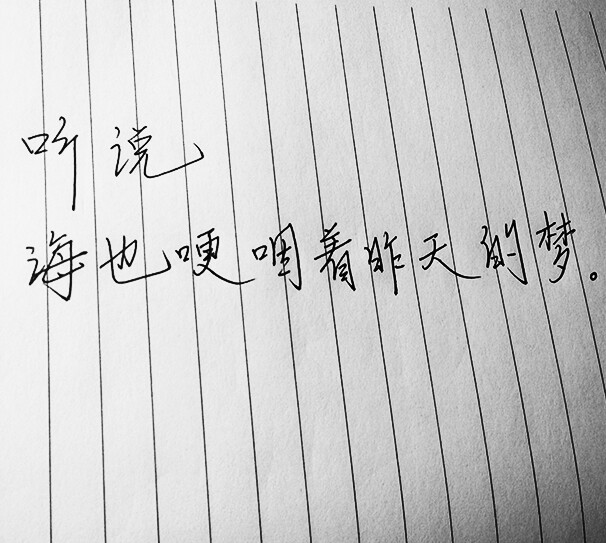 听说
海也哽咽着昨天的梦。